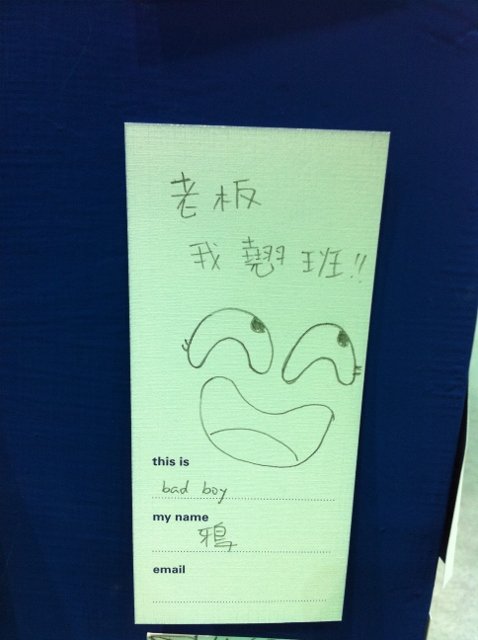 老板
我翹班!!
this is
bad boy
my name
鴉
email